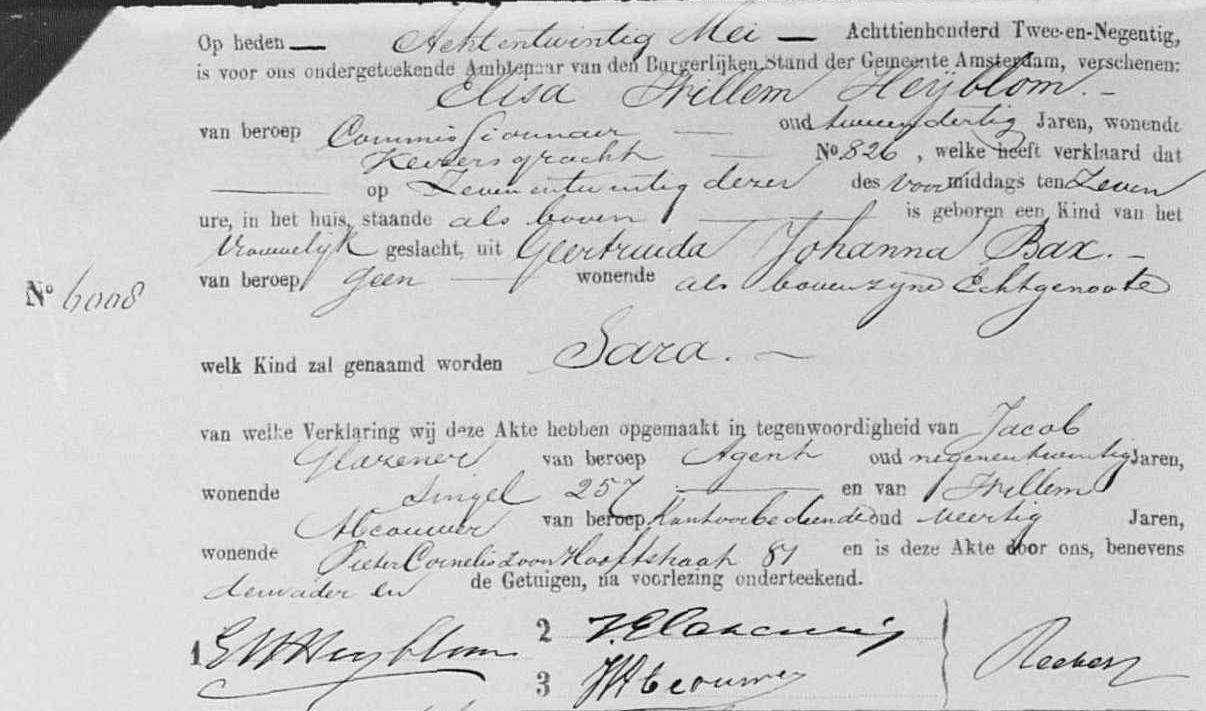 Op heden Achtentwintig Mei Achttienhonderd Twee-en-Negentig,
is voor ons ondergeteekende Ambtenaar van den Burgerlijken Stand der Gemeente Amsterdam, verschenen:
Elisa Willem Heijblom.
van beroep Commissionnair oud tweeendertig Jaren, wonende
Keizersgracht No. 826, welke heeft verklaard dat
op Zevenentwintig dezer des Voormiddags ten Zeven
ure, in het huis, staande als boven is geboren een Kind van het
Vrouwelijk geslacht, uit Geertruida Johanna Bax.
van beroep geen wonende als boven zijne Echtgenoote
No 6008
welk Kind zal genaamd worden Sara.
van welke Verklaring wij deze Akte hebben opgemaakt in tegenwoordigheid van Jacob
van beroep Agent oud negenentwintig Jaren,
wonende Singel 257 en van Willem
van beroep Kantoorbediende oud veertig Jaren,
wonende Pieter Corneliszoon Hooftstraat 81 en is deze Akte door ons, benevens
den vader en de Getuigen, na voorlezing onderteekend.
1 EWHeyblom 2
3